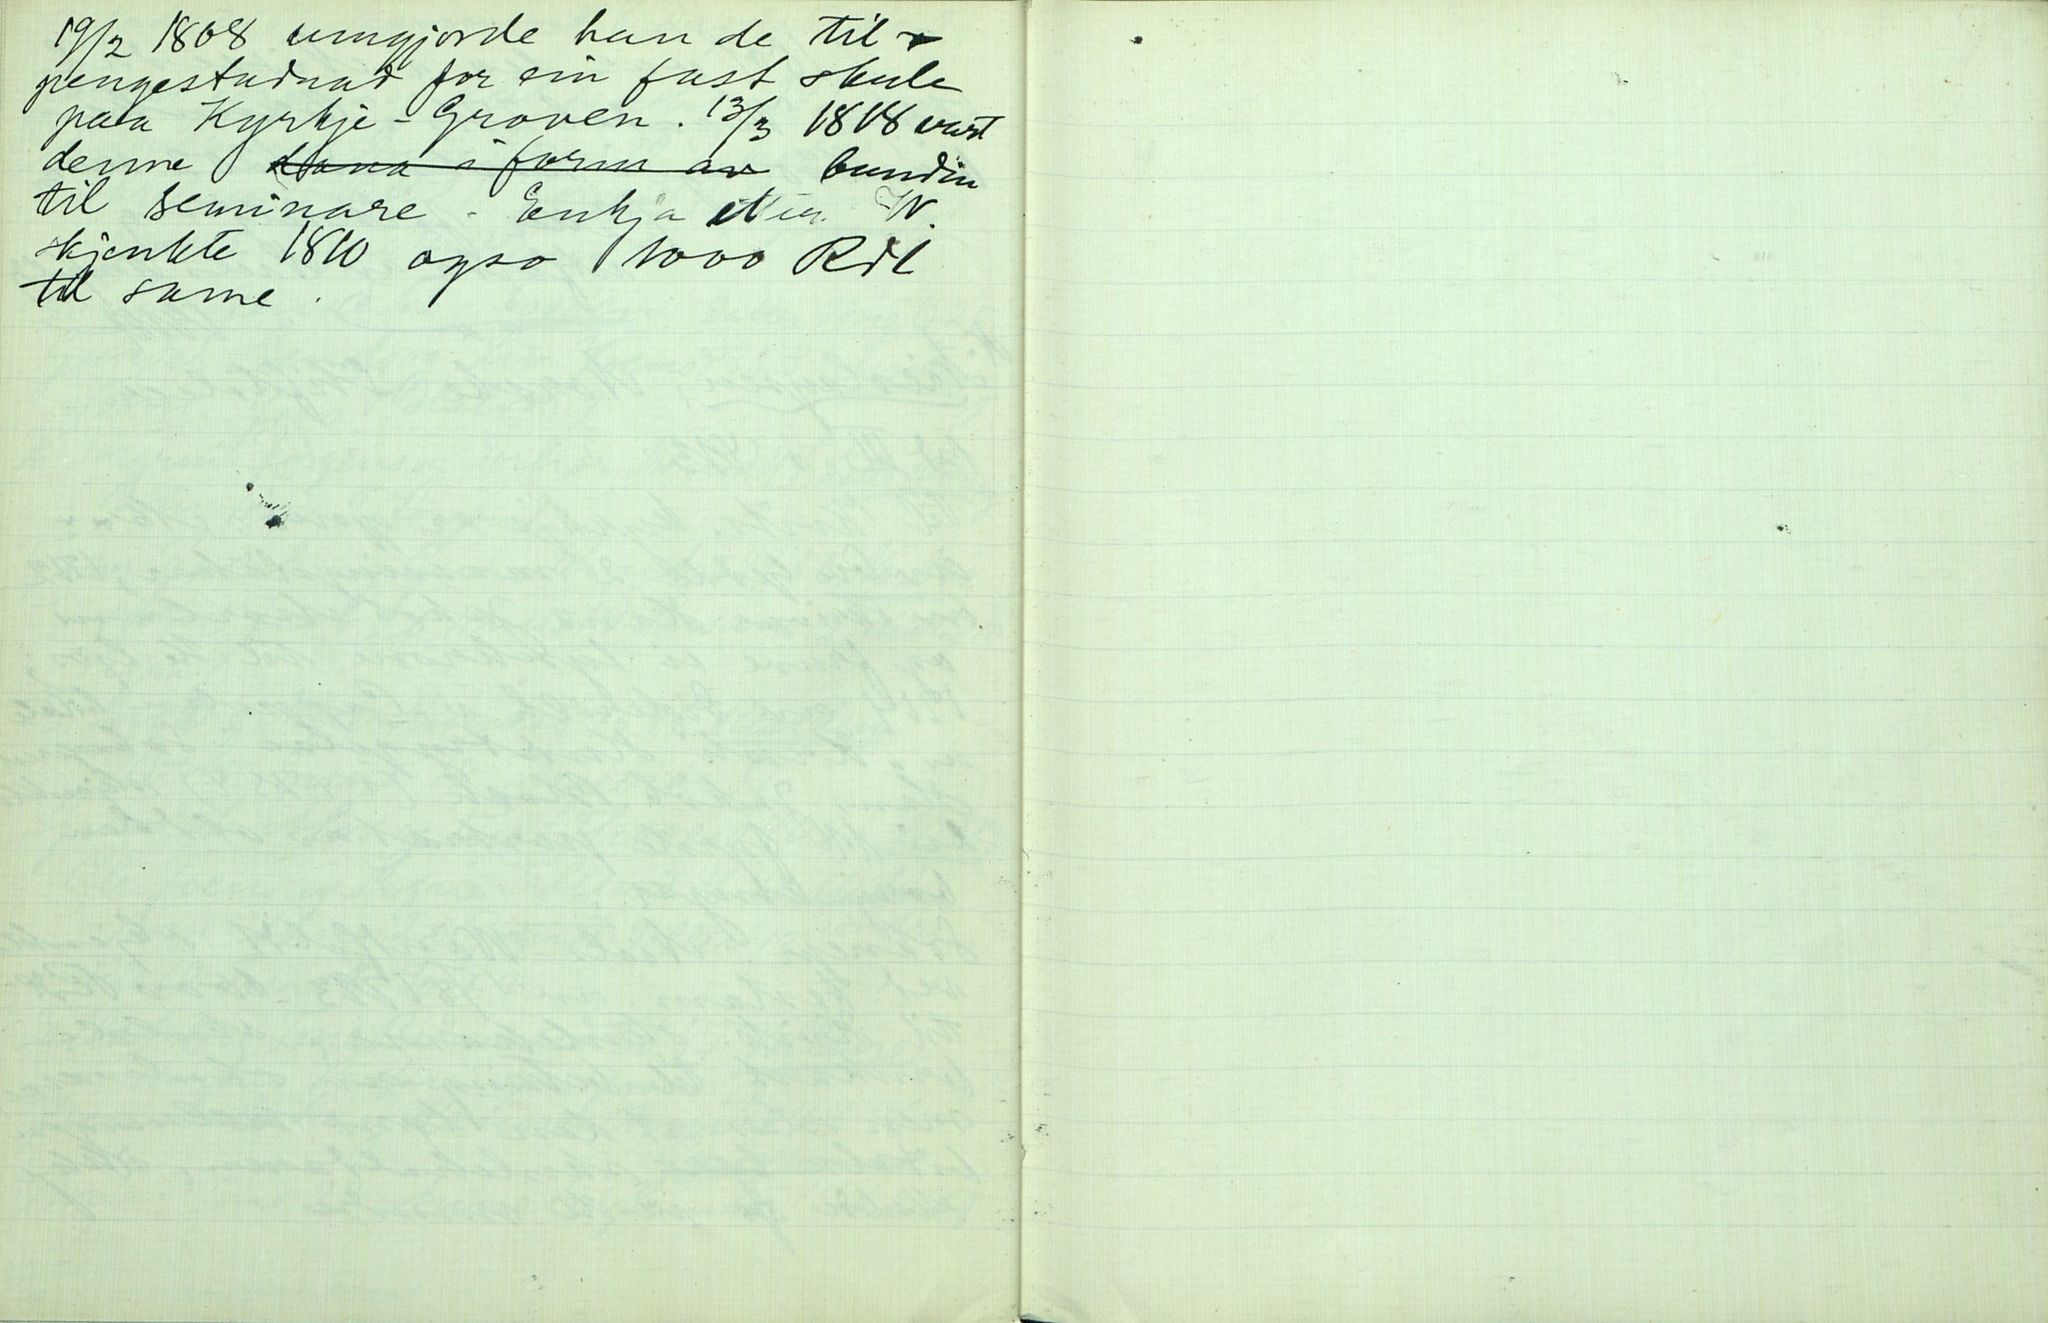 19/2 1808 umgjorde han de til
pengestudnad for ein fast skule
paa Kyrkje-Groven. 13/3 1818 vart
denne dana i form av bundin
til seminare. Enkja etter W.
skjenkte 1810 ogso 1000 Rdl
til same.